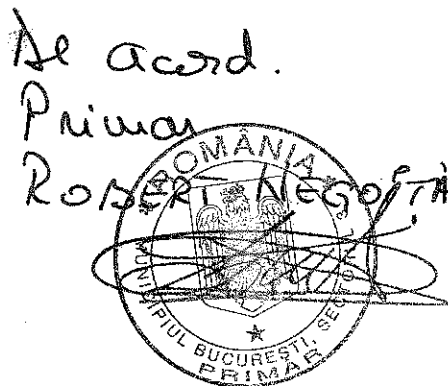 De acord.
Primar
ROBERT NEGOIȚĂ
ROMÂNIA
MUNICIPIUL BUCUREȘTI, SECTORUL 3
PRIMAR